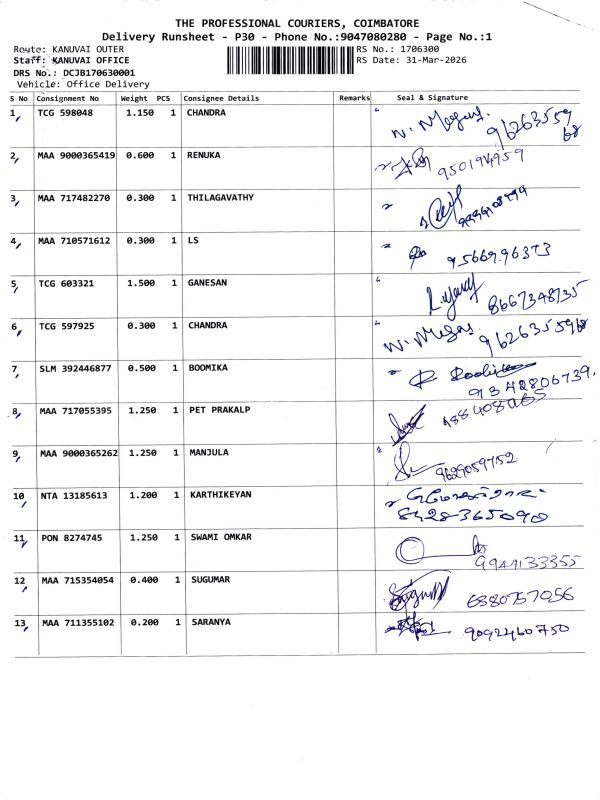 THE PROFESSIONAL COURIERS, COIMBATORE
Delivery Runsheet - P30 - Phone No.:9047080280 - Page No.:1
Route: KANUVAI OUTER RS No.: 1706300
Staff: KANUVAI OFFICE RS Date: 31-Mar-2026
DRS No.: DCJB170630001
Vehicle: Office Delivery
S No Consignment No Weight PCS Consignee Details Remarks Seal & Signature
1 TCG 598048 1.150 1 CHANDRA 96263559 68
2 MAA 9000365419 0.600 1 RENUKA
3 MAA 717482270 0.300 1 THILAGAVATHY
4 MAA 710571612 0.300 1 LS
5 TCG 603321 1.500 1 GANESAN 8667348735
6 TCG 597925 0.300 1 CHANDRA 9626355968
7 SLM 392446877 0.500 1 BOOMIKA 9342806739
8 MAA 717055395 1.250 1 PET PRAKALP
9 MAA 9000365262 1.250 1 MANJULA 9629059752
10 NTA 13185613 1.200 1 KARTHIKEYAN 8428365090
11 PON 8274745 1.250 1 SWAMI OMKAR 9944133355
12 MAA 715354054 0.400 1 SUGUMAR 6380757056
13 MAA 711355102 0.200 1 SARANYA 9092460750